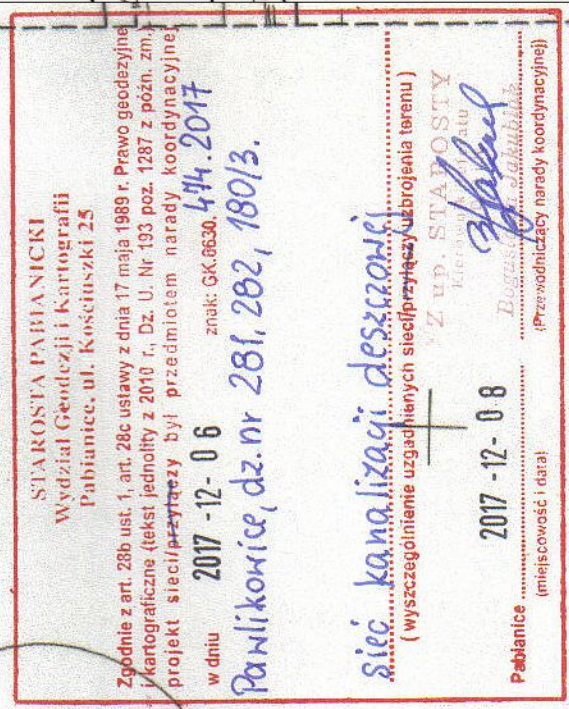 STAROSTA PABIANICKI
Wydział Geodezji i Kartografii
Pabianice, ul. Kościuszki 25
Zgodnie z art. 28b ust. 1, art. 28c ustawy z dnia 17 maja 1989 r. Prawo geodezyjne
i kartograficzne (tekst jednolity z 2010 r., Dz. U. Nr 193 poz. 1287 z późn. zm.)
projekt sieci/przyłączy był przedmiotem narady koordynacyjnej
w dniu 2017 -12- 06 znak: GK.6630.474.2017
Pawlikowice, dz. nr 281, 282, 180/3.
sieć kanalizacji deszczowej
(wyszczególnienie uzgadnianych sieci/przyłączy uzbrojenia terenu)
Z up. STAROSTY
Bogusława Jakubiak
Pabianice 2017 -12- 08
(miejscowość i data)
(Przewodniczący narady koordynacyjnej)